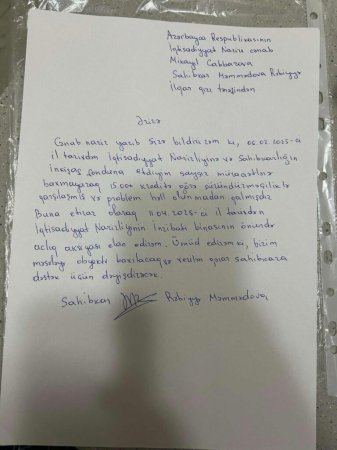 Azərbaycan Respublikasının
İqtisadiyyat Naziri cənab
Mikayıl Cabbarova
Sahibkar Məmmədova Rəbiyyə
İlqar qızı tərəfindən
Ərizə
Cənab nazir yazıb Sizə bildirirəm ki, 06.02.2025-ci
il tarixdən İqtisadiyyat Nazirliyinə və Sahibkarlığın
inkişaf fonduna etdiyim saysız müraciətlərə
baxmayaraq 15.000 kreditə görə süründürməçiliklə
qarşılaşmış və problem həll olunmadan qalmışdır
Buna etiraz olaraq 11.04.2025-ci il tarixdən
İqtisadiyyat Nazirliyinin İnzibati binasının önündə
aclıq aksiyası elan edirəm. Ümüd edirəm ki, bizim
məsələyə obyektiv baxılacaq və verilən qərar sahibkara
dəstək üçün dəyişdiriləcək.
Sahibkar Rəbiyyə Məmmədova